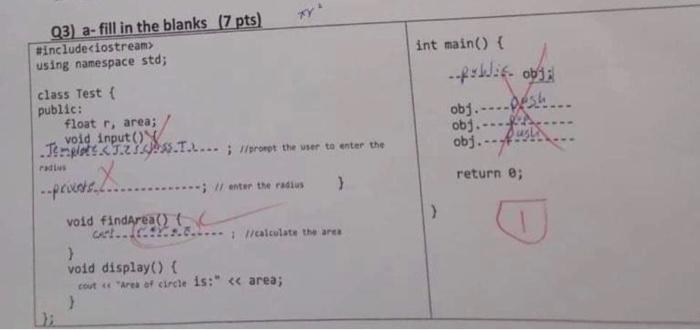 Q3) a- fill in the blanks (7 pts)
#include<iostream>
using namespace std;
class Test {
public:
float r, area;
void input() {
; //prompt the user to enter the
radius
; // enter the radius }
void findArea() {
; //calculate the area
}
void display() {
cout << "Area of circle is:" << area;
}
};
int main() {
public obj;
obj. push
obj. pop
obj. push
return 0;
}
1